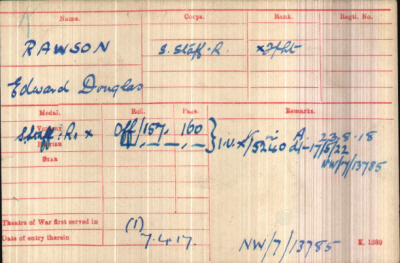 Name. Corps. Rank. Regtl. No.
RAWSON S. Staff. R. x Lt
Edward Douglas
Medal. Roll. Page. Remarks.
Victory Off/157. 160 A. 23.8.18
Staff. R. x British I.V. x/5240 d/-17/5/22
NW/7/13785
Star
Theatre of War first served in (1)
Date of entry therein 7.4.17. NW/7/13785 K. 1380